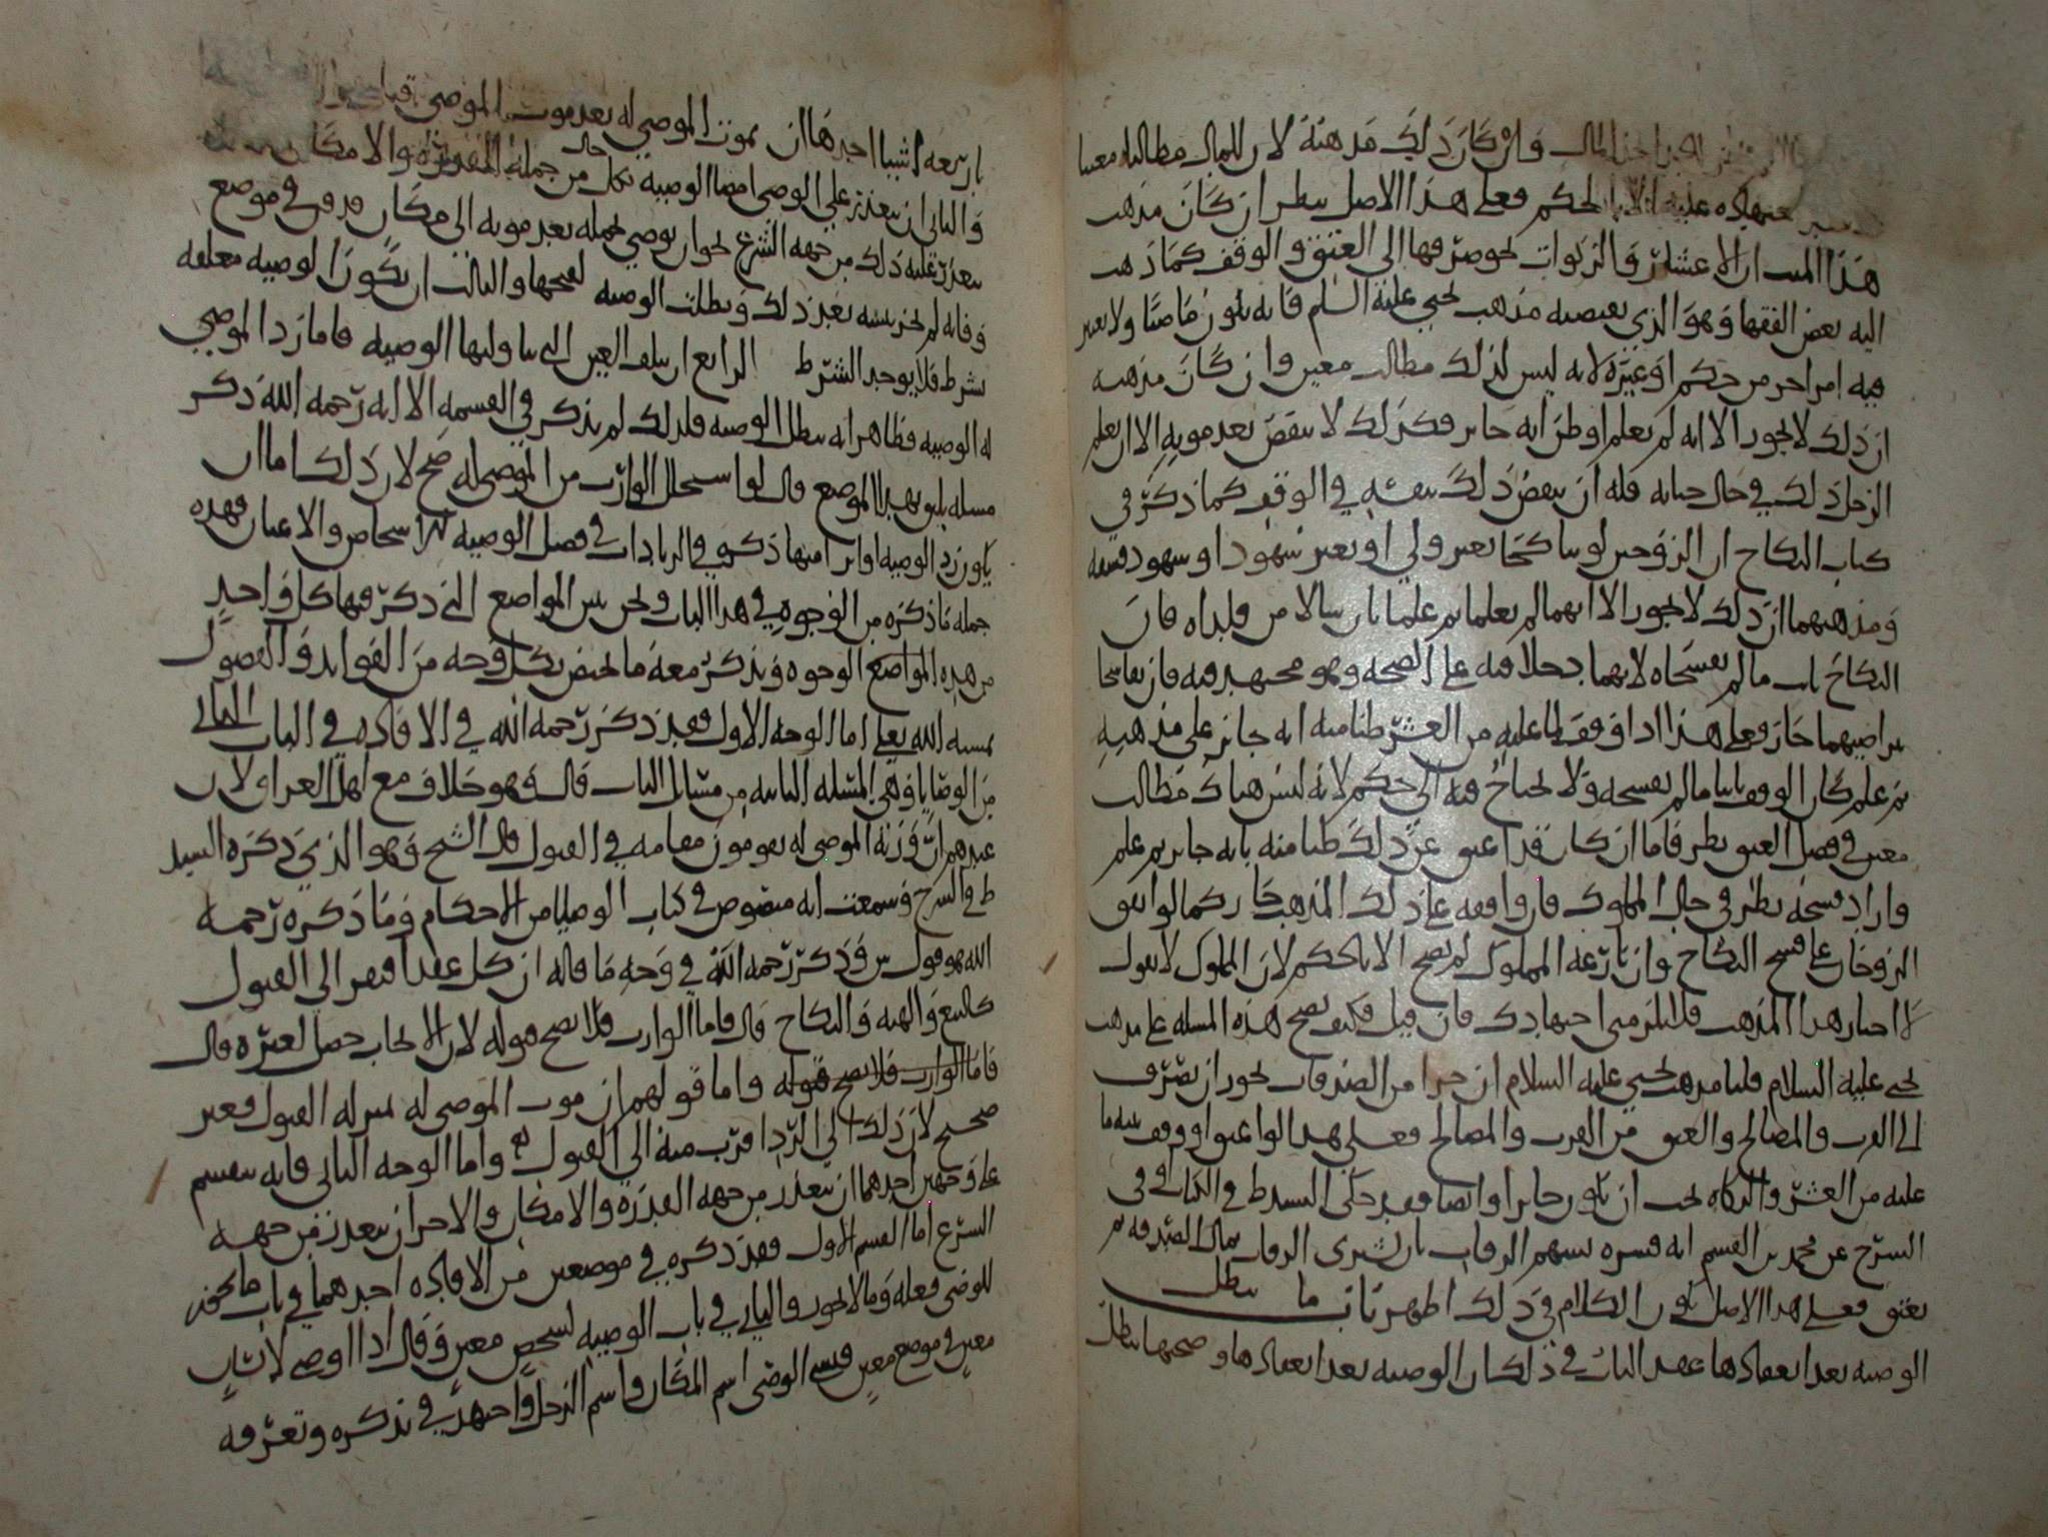 وان كان ذلك مذهبة لان للمال مطالبا معينا
عليه الا بالحكم فعلى هذا الاصل ينظر ان كان مذهب
هذا الميت ان الاعشار والزكوات يجوز صرفها الى العتق والوقف كما ذهب
اليه بعض الفقها وهو الذي يقتضيه مذهب يحيى عليه السلم فانه يكون ماضيا ولا يعتبر
فيه امر اخر من حكم او غيره لانه ليس لذلك مطالب معين وان كان مذهبه
ان ذلك لا يجوز الا انه لم يعلم او ظن انه جايز فكذلك لا ينقض بعد موته الا ان يعلم
الرجل ذلك في حال حياته فله ان ينقض ذلك بنفسه في الوقف كما ذكر في
كتاب النكاح ان الزوجين لو تناكحا بغير ولي او بغير شهود او شهود فسقه
ومذهبهما ان ذلك لا يجوز الا انهما لم يعلما ثم علما بان سالا من قلداه فان
النكاح ثابت ما لم يفسخاه لانهما دخلا فيه على الصحه وهو مجتهد فيه فان تفاسخا
بتراضيهما جاز فعلى هذا اذا وقف ما عليه من العشر ظنا منه انه جايز على مذهبه
ثم علم كان الوقف ثابتا ما لم يفسخه ولا يحتاج فيه الى حكم لانه ليس هناك مطالب
معين في فصل العتق نظر فاما ان كان قد اعتق عن ذلك ظنا منه بانه جايز ثم علم
واراد فسخه نظر في حال المملوك فان وافقه على ذلك المذهب جاز كما لو اتفق
الزوجان على فسخ النكاح وان نازعه المملوك لم يصح الا بالحكم لان المملوك لا يقول
لا اختار هذا المذهب فلا يلزمني اجتهادك فان قيل فكيف يصح هذه المسله على مذهب
يحيى عليه السلام قلنا مذهب يحيى عليه السلام ان جزا من الصدقات يجوز ان يصرف
الى القرب والمصالح والعتق من القرب والمصالح فعلى هذا لو اعتق او وقف بنيه ما
عليه من العشر والزكاه يجب ان يكون جايزا وايضا فقد حكى السيد ط في الكتاب في
الشرح عن محمد بن القسم انه فسره بسهم الرقاب بان تشترى الرقاب بمال الصدقه ثم
يعتق فعلى هذا الاصل يكون الكلام في ذلك اظهر باب ما يبطل
الوصيه بعد انعقادها عقد الباب في ذلك ان الوصيه بعد انعقادها وصحتها تبطل
باربعه اشيا احدها ان يموت الموصى له بعد موت الموصي قبل
والثاني ان يتعذر على الوصي امضا الوصيه بكل حال من جمله القدره والامكان
يتعذر عليه ذلك من جهه الشرع نحو ان يوصي بحمله بعد موته الى مكان فدفن في موضع
وفاته لم يجز نبشه بعد ذلك وبطلت الوصيه لقبحها والثالث ان يكون الوصيه معلقه
بشرط فلا يوجد الشرط الرابع ان يتلف العين التي تناولتها الوصيه فاما رد الموصى
له الوصيه فظاهر انه يبطل الوصيه فلذلك لم يذكر في القسمه الا انه رحمه الله ذكر
مسله يليق بهذا الموضع قال لو استحلل الوارث من الموصى له صح لان ذلك اما ان
يكون رد الوصيه او ابرا منها ذكره في الزيادات في فصل الوصيه للاشخاص والاعيان فهذه
جمله ما ذكره من الوجوه في هذا الباب ونحن نبين المواضع التي ذكر فيها كل واحد
من هذه المواضع الوجوه ونذكر معه ما يختص بكل وجه من الفوايد والفصول
بمشيه الله تعلى اما الوجه الاول فقد ذكر رحمه الله في الافاده في الباب الثاني
من الوصايا وهي المسله الثانيه من مسايل الباب قال وهو خلاف مع اهل العراق لان
عندهم ان ورثه الموصى له يقومون مقامه في القبول قال الشيخ وهو الذي ذكره السيد
ط في الشرح وسمعت انه منصوص في كتاب الوصايا من الاحكام وما ذكره رحمه
الله هو قول وذكر رحمه الله في وجه ما قاله ان كل عقد افتقر الى القبول
كالبيع والهبه والنكاح قال فاما الوارث فلا يصح قبوله لان الايجاب حصل لغيره قال
فاما الوارث فلا يصح قبوله واما قولهم ان موت الموصى له بمنزله القبول فغير
صحيح لان ذلك الى الرد اقرب منه الى القبول واما الوجه الثاني فانه ينقسم
على وجهين احدهما ان يتعذر من جهه القدره والامكان والاخر ان يتعذر من جهه
الشرع اما القسم الاول فقد ذكره في موضعين من الافاده احدهما في باب ما يجوز
للوصي فعله وما لا يجوز والثاني في باب الوصيه لشخص معين وقال اذا اوصى لانسان
معين في موضع معين فنسي الوصي اسم المكان واسم الرجل واجتهد في تذكره وتعرفه